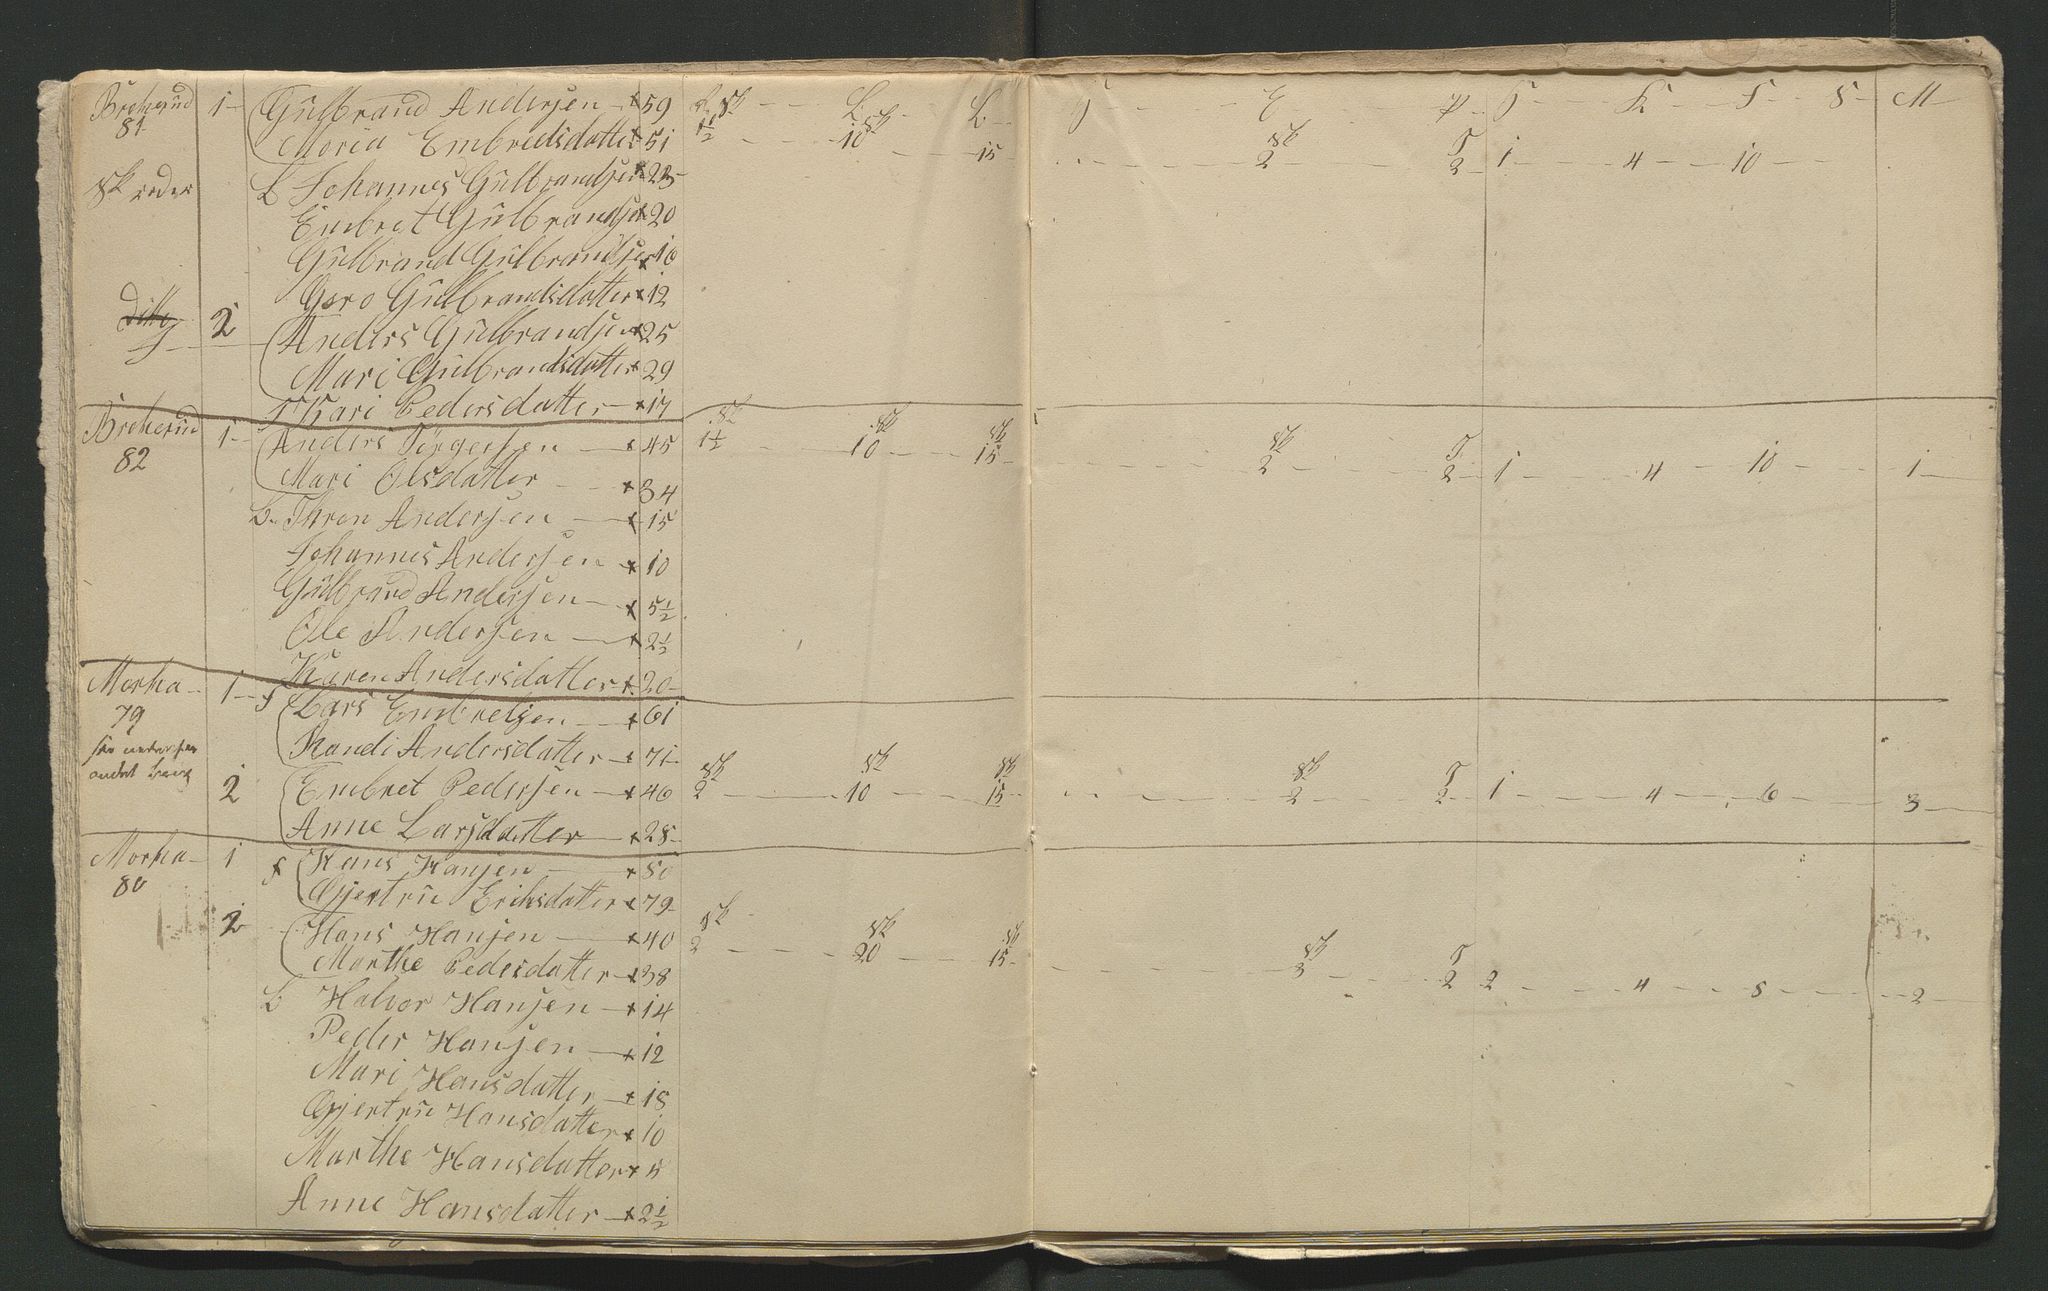 Brekerud 1 - Gulbrand Andersen - x 59 L L H K F S M
81 Maria Embredsdatter x 51 1½ 10 15 2 2 1 4 10
Sk reder L Johannes Gulbrandsen x 23
Embret Gulbrandsen x 20
Gulbrand Gulbrandsen x 16
Goro Gulbrandsdatter x 12
Ditto 2 Anders Gulbrandsen x 25
Mari Gulbrandsdatter x 29
T Kari Pedersdatter - x 17
Brekerud 1 - Anders Törgersen - x 45 1½ Sk 10 Sk 15 Sk 2 Sk 2 T 1 4 10 1
82 Mari Olsdatter - x 34
B. Thron Andersen - x 15
Johannes Andersen - x 10
Gulbrand Andersen - x 5½
Ole Andersen - x 2½
Karen Andersdatter x 20
Morka 1 - f Lars Embretsen - x 61
79 Randi Andersdatter - x 71
andet
2 Embret Pedersen - x 46 2 Sk 10 Sk 15 Sk 2 Sk 2 T 1 4 6 3
Anne Larsdatter - x 28
Morka 1 f Hans Hansen - x 80
80 Gjertru Eriksdatter x 79
2 Hans Hansen - x 40 2 Sk 20 Sk 15 Sk 3 Sk 2 T 2 4 8 2
Marthe Pedersdatter x 38
L Halvor Hansen - x 14
Peder Hansen - x 12
Mari Hansdatter - x 18
Gjertru Hansdatter x 10
Marthe Hansdatter x 5
Anne Hansdatter - x 2½